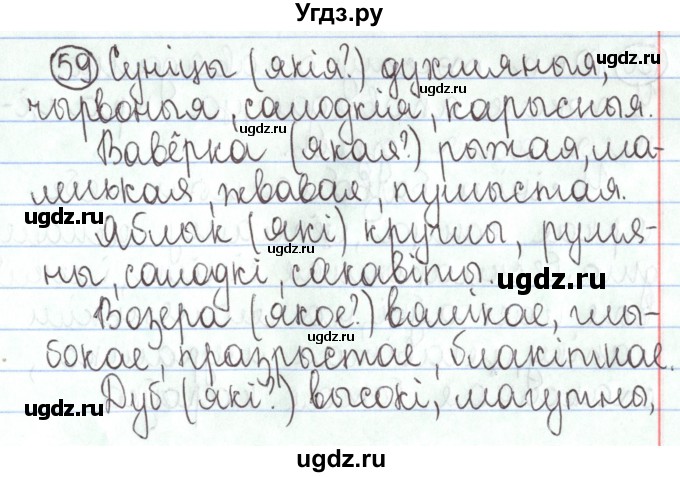 Угдз.ру
59 Суніцы (якія?) духмяныя,
чырвоныя, салодкія, карысныя.
Вавёрка (якая?) рыжая, ма-
ленькая, жвавая, пушыстая.
Яблык (які) круглы, румя-
ны, салодкі, сакавіты.
Возера (якое?) вялікае, глы-
бокае, празрыстае, блакітнае.
Дуб (які?) высокі, магутны,
ugdz.ru
ugdz.ru
ugdz.ru
ugdz.ru
ugdz.ru
ugdz.ru
ugdz.ru
ugdz.ru
ugdz.ru
ugdz.ru
ugdz.ru
ugdz.ru
ugdz.ru